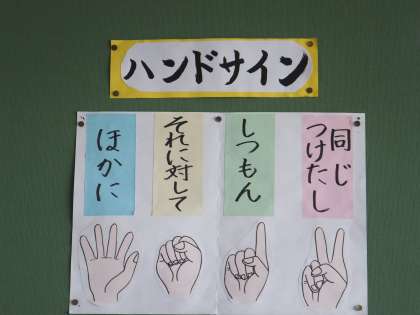 ハンドサイン
同じ
つけたし
しつもん
それに対して
ほかに